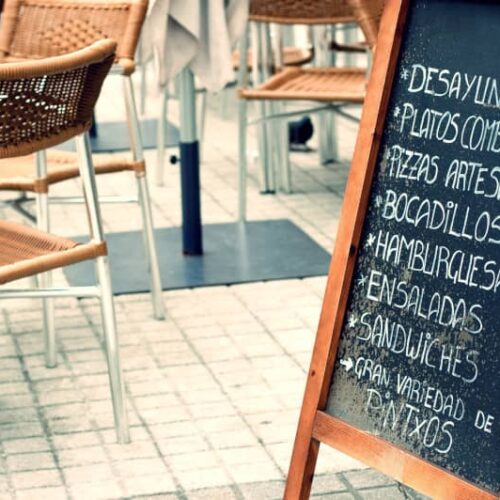 *DESAYUN
*PLATOS COMB
PIZZAS ARTES
*BOCADILLOS
*HAMBURGUES
*ENSALADAS
*SANDWICHES
→GRAN VARIEDAD DE
PINTXOS